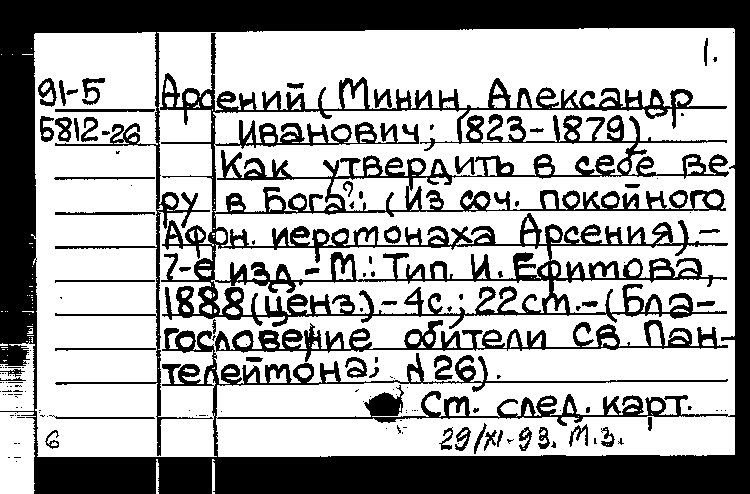 1.
91-5 Арсений (Минин, Александр
5812-26 Иванович; 1823-1879).
Как утвердить в себе ве-
ру в Бога?: (Из соч. покойного
Афон. иеромонаха Арсения).-
7-е изд.- М.: Тип. И. Ефимова,
1888(ценз.).- 4с.; 22см.- (Бла-
гословение обители Св. Пан-
телеймона; №26).
См. след. карт.
6 29/XI-93. М.З.